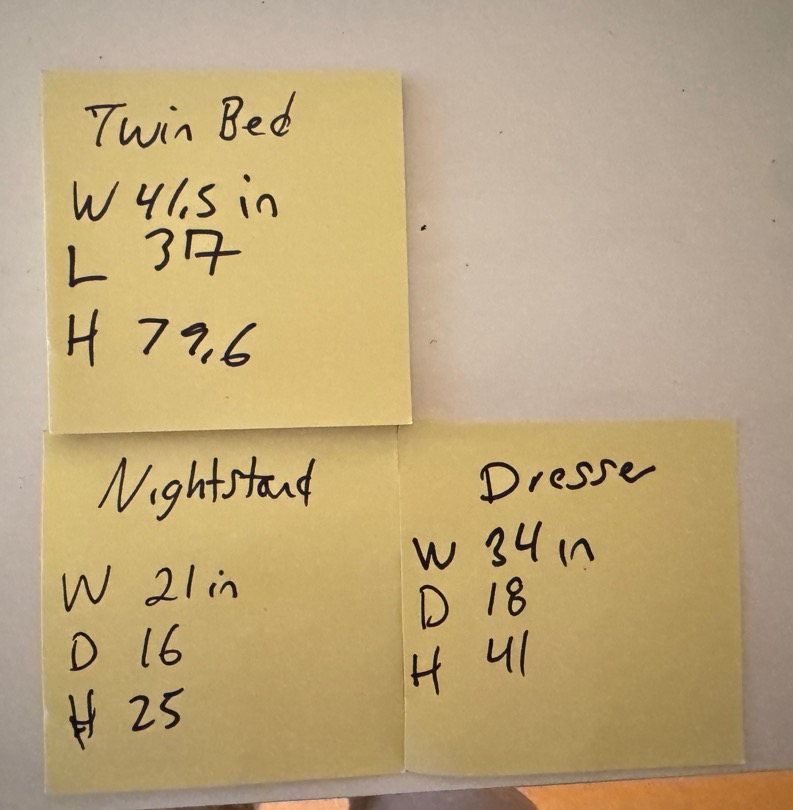 Twin Bed
W 41.5 in
L 37
H 79.6
Nightstand
W 21 in
D 16
H 25
Dresser
W 34 in
D 18
H 41